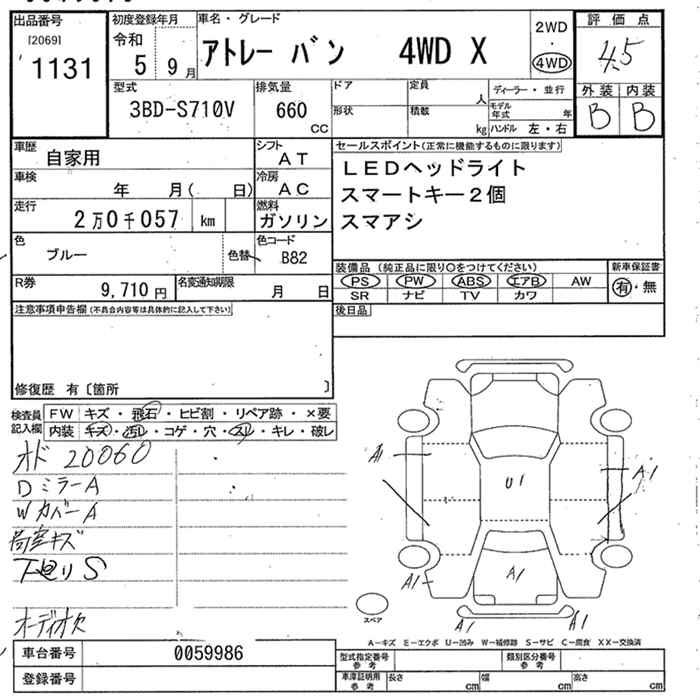 出品番号
[2069]
1131
初度登録年月
令和
5 9月
車名・グレード
アトレー バン 4WD X
2WD
4WD
評価点
4.5
外装 内装
B B
型式
3BD-S710V
排気量
660
CC
ドア
形状
定員
人
積載
kg
ディーラー・並行
モデル年式 年
ハンドル 左・右
車歴
自家用
車検
年 月( 日)
走行
2万0千057 km
シフト
AT
冷房
AC
燃料
ガソリン
色
ブルー
色替
色コード
B82
R券
9,710円
名変通知期限
月 日
セールスポイント(正常に機能するものに限ります)
LEDヘッドライト
スマートキー2個
スマアシ
装備品 (純正品に限り○をつけてください)
PS PW ABS エアB AW
SR ナビ TV カワ
新車保証書
有・無
後日品
注意事項申告欄(不具合内容等は具体的に記入して下さい)
修復歴 有〔箇所 〕
検査員記入欄
FW キズ・飛石・ヒビ割・リペア跡・×要
内装 キズ・汚れ・コゲ・穴・スレ・キレ・破レ
オド 20060
DミラーA
WカバーA
荷室キズ
下廻りS
オーディオ欠
A1
A1
U1
A1
A1
A1
A1
スペア
A-キズ E-エクボ U-凹み W-補修跡 S-サビ C-腐食 XX-交換済
車台番号
0059986
登録番号
型式指定番号
参考
類別区分番号
参考
車庫証明用
参考
長さ cm
幅 cm
高さ cm